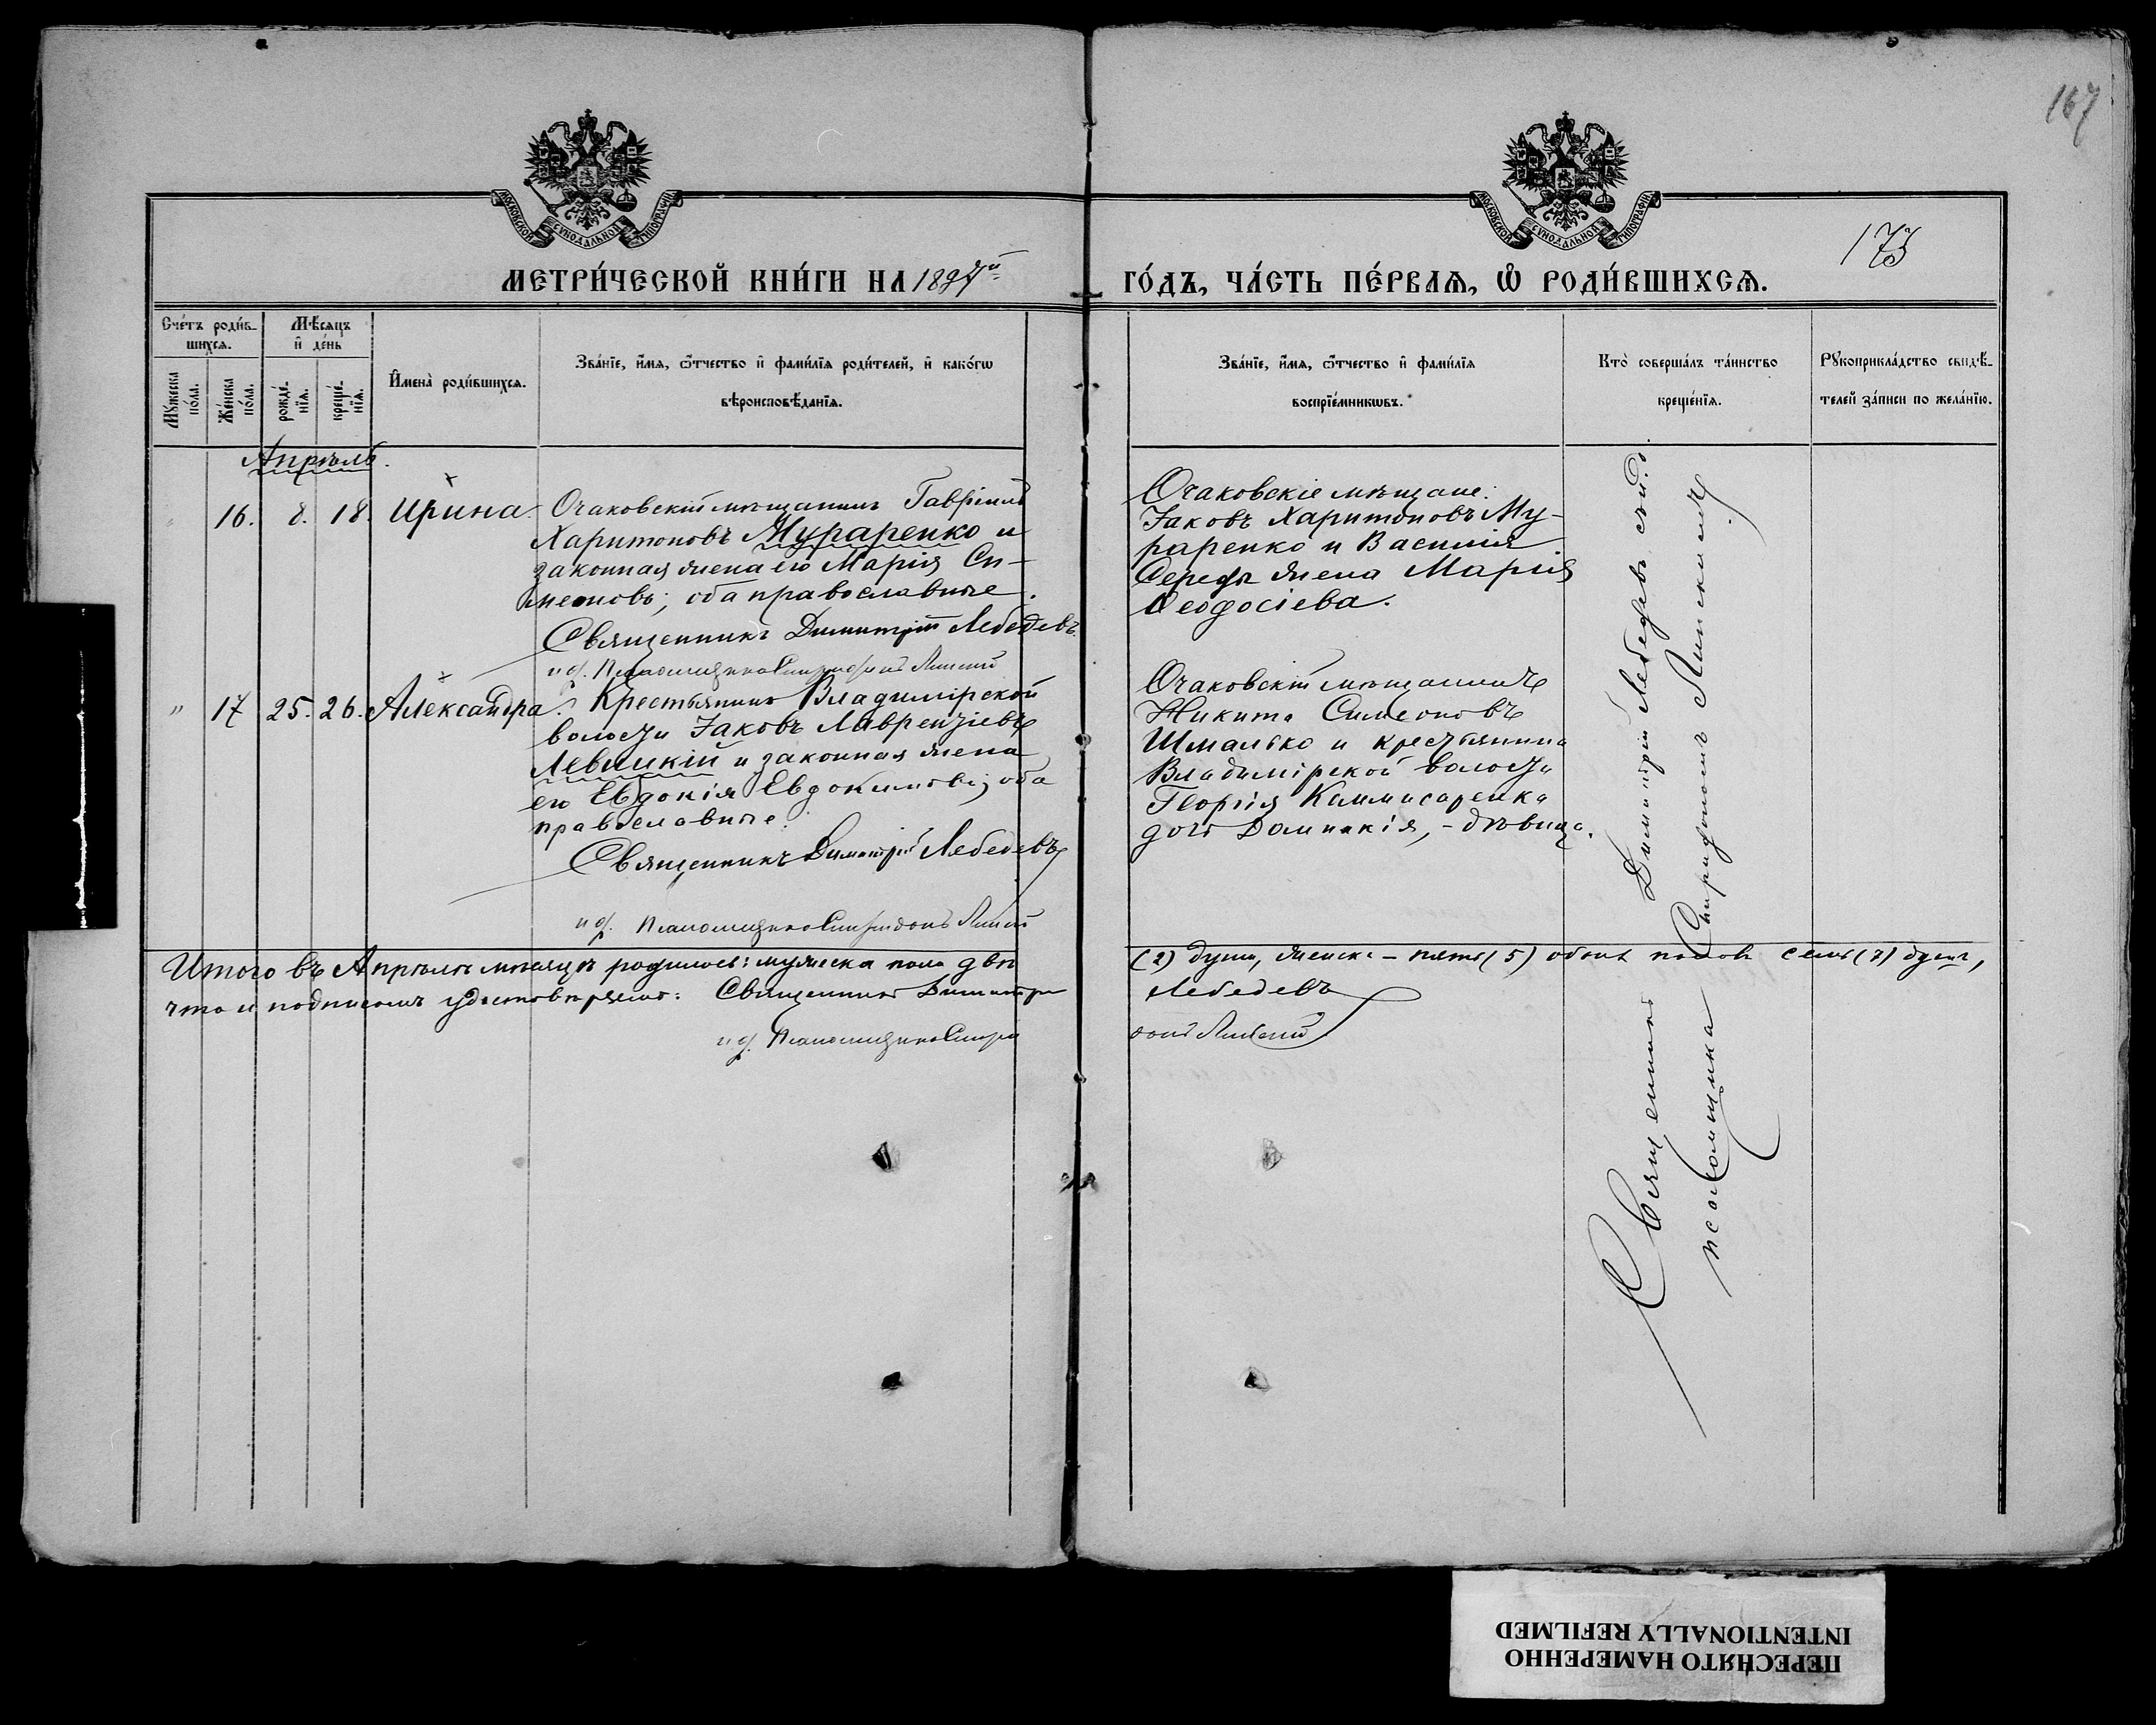 167
МОСКОВСКОЙ СѴНОДАЛЬНОЙ ТИПОГРАФІИ
МОСКОВСКОЙ СѴНОДАЛЬНОЙ ТИПОГРАФІИ
175
МЕТРИ́ЧЕСКОЙ КНИ́ГИ НА 1897й
ГО́ДЪ, ЧА́СТЬ ПЕ́РВАѦ, Ѡ҆ РОДИ́ВШИХСѦ.
Сче́тъ роди́в-
шихсѧ.
Мѣ́сѧцъ
и҆ де́нь
Мꙋ́жеска
по́ла.
Же́нска
по́ла.
рожде́-
нїѧ.
креще́-
нїѧ.
И҆мена̀ роди́вшихсѧ.
Зва́нїе, и҆́мѧ, ѻ҆́тчество и҆ фами́лїѧ роди́телей, и҆ како́гѡ
вѣроисповѣ́данїѧ.
Зва́нїе, и҆́мѧ, ѻ҆́тчество и҆ фами́лїѧ
воспрїе́мникѡвъ.
Кто̀ соверша́лъ та́инство
креще́нїѧ.
Рꙋкоприкла́дство свидѣ́-
телей за́писи по жела́нїю.
Апрѣль.
" 16. 8. 18. Ирина
Очаковскій мѣщанинъ Гавріилъ
Харитоновъ Мураренко и
законная жена его Марія Си-
меонова; оба православные.
Священникъ Димитрій Лебедевъ
и. д. Псаломщика Спиридонъ Липскій
Очаковскіе мѣщане:
Іаковъ Харитоновъ Му-
раренко и Василія
Середы жена Марія
Ѳеодосіева.
" 17 25. 26. Александра
Крестьянинъ Владимірской
волости Іаковъ Лаврентіевъ
Левицкій и законная жена
его Евдокія Евдокимова; оба
православные.
Священникъ Димитрій Лебедевъ
и. д. Псаломщика Спиридонъ Липскій
Очаковскій мѣщанинъ
Никита Симеоновъ
Шмалько и крестьянина
Владимірской волости
Георгія Каммисаренка
дочь Домникія, - дѣвица.
Священникъ Димитрій Лебедевъ съ и. д.
псаломщика Спиридономъ Липскимъ.
Итого въ Апрѣлѣ мѣсяцѣ родилось: мужеска пола двѣ (2) души, женска - пять (5) обоихъ половъ семь (7) душъ,
что и подписомъ удостовѣряемъ: Священникъ Димитрій Лебедевъ
и. д. Псаломщика Спиридонъ Липскій
ПЕРЕСНЯТО НАМЕРЕННО
INTENTIONALLY REFILMED